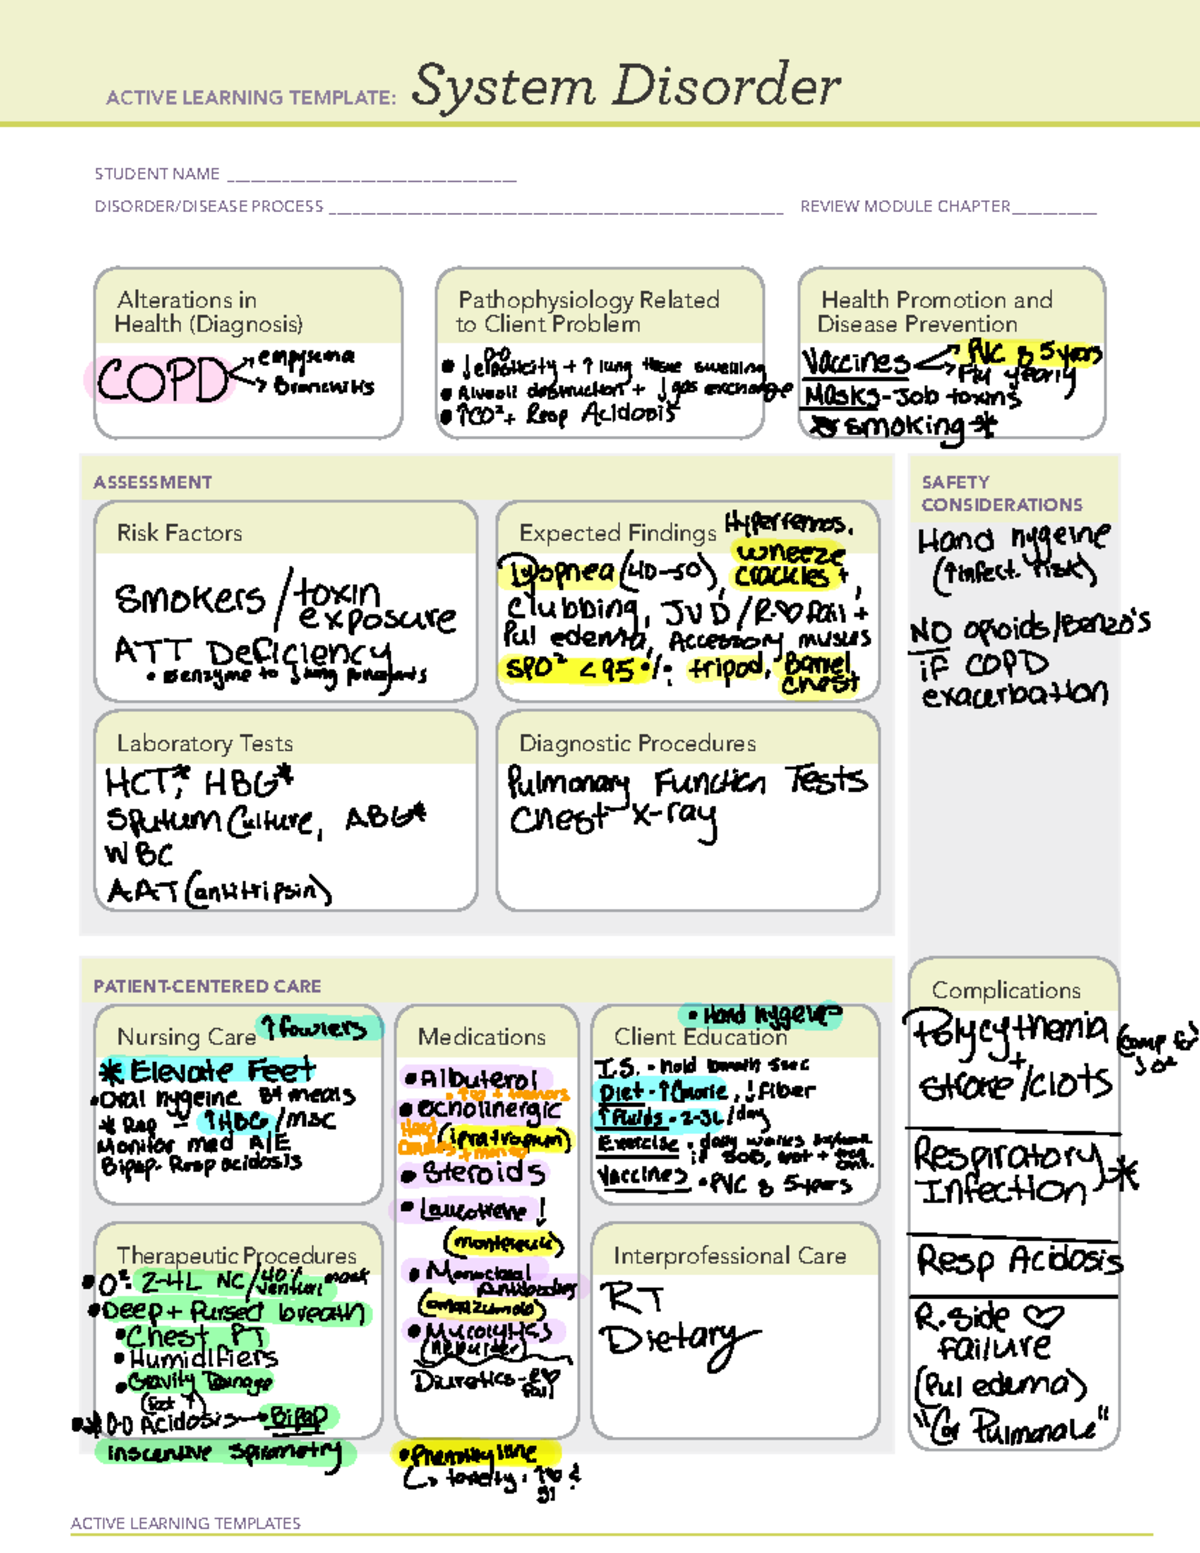 ACTIVE LEARNING TEMPLATE: System Disorder
STUDENT NAME
DISORDER/DISEASE PROCESS REVIEW MODULE CHAPTER
Alterations in
Health (Diagnosis)
COPD
empysema
Bronchitis
Pathophysiology Related
to Client Problem
• ↓ elasticity + ↑ lung tissue swelling
• Alveoli destruction + ↓ gas exchange
• ↑CO² + Resp Acidosis
Health Promotion and
Disease Prevention
Vaccines
PVC & 5 years
Flu yearly
Masks - Job toxins
smoking*
ASSESSMENT
Risk Factors
Smokers / toxin
exposure
ATT Deficiency
Expected Findings
wheeze
crackles +
Dyspnea (40-50),
Clubbing, JVD / R♡ fail +
Pul edema, Accessory muscles
SPO² <95%, tripod, Barrel
chest
Laboratory Tests
HCT*, HBG*
Sputum Culture, ABG*
WBC
AAT (antitripsin)
Diagnostic Procedures
Pulmonary Function Tests
Chest X-ray
SAFETY
CONSIDERATIONS
Hand hygeine
(↑infect. risk)
NO opioids/Benzo's
if COPD
exacerbation
PATIENT-CENTERED CARE
Nursing Care
↑ fowlers
* Elevate Feet
• Oral hygeine B4 meals
↑HBG / MSC
Monitor med A/E
Bipap. Resp acidosis
Therapeutic Procedures
• O²: 2-4L NC / 40% venturi mask
• Deep + Pursed breath
• Chest PT
• Humidifiers
• Gravity
Acidosis → • BiPAP
inscentive spirometry
Medications
• Albuterol
(ipratropium)
• Steroids
Diuretics -
toxicity:
Client Education
• Hand hygeine
I.S. • hold breath 5sec
Diet • ↑Calorie, ↓fiber
↑fluids • 2-3L/day
Exercise
if SOB, wait +
Vaccines • PVC & 5 years
Interprofessional Care
RT
Dietary
Complications
Polycythemia
+
stroke/clots
Respiratory
Infection *
Resp Acidosis
R. side ♡
failure
(Pul edema)
"Cor Pulmonale"
ACTIVE LEARNING TEMPLATES